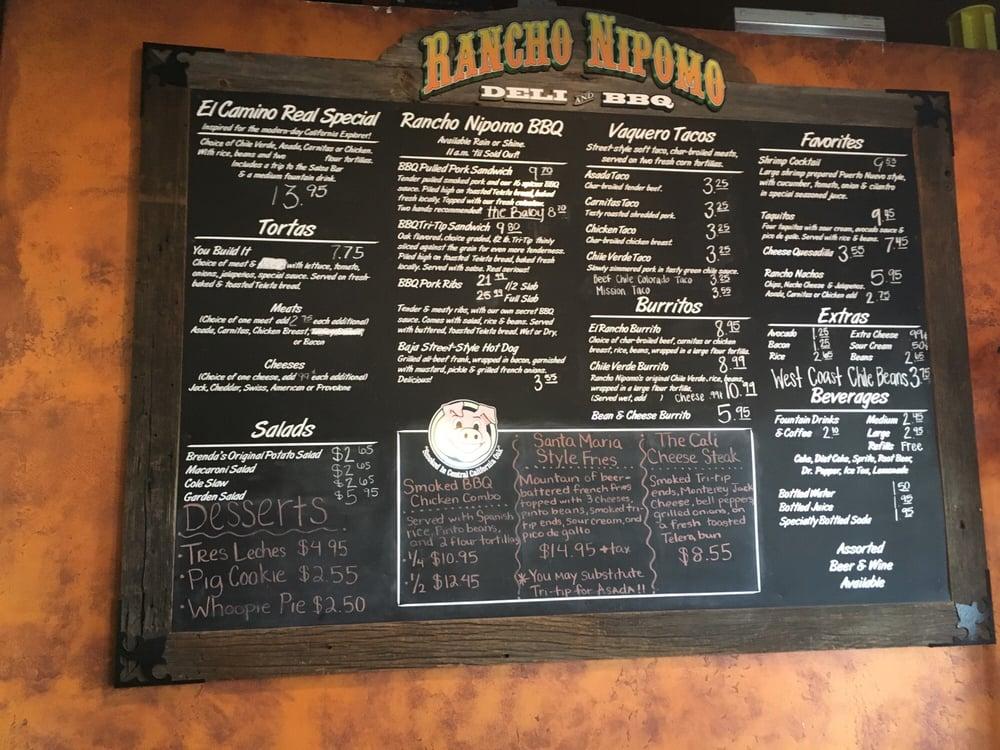 RANCHO NIPOMO
DELI AND BBQ
El Camino Real Special
Inspired for the modern-day California Explorer!
Choice of Chile Verde, Asada, Carnitas or Chicken.
With rice, beans and two flour tortillas.
Includes a trip to the Salsa Bar
& a medium fountain drink.
13.95
Tortas
You Build It 7.75
Choice of meat & with lettuce, tomato,
onions, jalapeños, special sauce. Served on fresh
baked & toasted Telera bread.
Meats
(Choice of one meat add 2.75 each additional)
Asada, Carnitas, Chicken Breast,
or Bacon
Cheeses
(Choice of one cheese, add 99¢ each additional)
Jack, Cheddar, Swiss, American or Provolone
Salads
Brenda's Original Potato Salad $2.65
Macaroni Salad $2.65
Cole Slaw $2.65
Garden Salad $5.95
Desserts
• Tres Leches $4.95
• Pig Cookie $2.55
• Whoopie Pie $2.50
Rancho Nipomo BBQ
Available Rain or Shine.
11 a.m. 'til Sold Out!
BBQ Pulled Pork Sandwich 9.70
Tender pulled smoked pork and our 16 spices BBQ
sauce. Piled high on toasted Telera bread, baked
fresh locally. Topped with our fresh coleslaw.
Two hands recommended! the Baby 8.20
BBQ Tri-Tip Sandwich 9.80
Oak flavored, choice graded, 12 lb. Tri-Tip thinly
sliced against the grain for even more tenderness.
Piled high on toasted Telera bread, baked fresh
locally. Served with salsa. Real serious!
BBQ Pork Ribs 21.99 1/2 Slab
25.99 Full Slab
Tender & meaty ribs, with our own secret BBQ
sauce. Comes with salad, rice & beans. Served
with buttered, toasted Telera bread. Wet or Dry.
Baja Street-Style Hot Dog
Grilled all-beef frank, wrapped in bacon, garnished
with mustard, pickle & grilled french onions.
Delicious! 3.55
Vaquero Tacos
Street-style soft taco, char-broiled meats,
served on two fresh corn tortillas.
Asada Taco 3.25
Char-broiled tender beef.
Carnitas Taco 3.25
Tasty roasted shredded pork.
Chicken Taco 3.25
Char-broiled chicken breast.
Chile Verde Taco 3.25
Slowly simmered pork in tasty green chile sauce.
Beef Chile Colorado Taco 3.25
Mission Taco 3.55
Burritos
El Rancho Burrito 8.95
Choice of char-broiled beef, carnitas or chicken
breast, rice, beans, wrapped in a large flour tortilla.
Chile Verde Burrito 8.99
Rancho Nipomo's original Chile Verde, rice, beans,
wrapped in a large flour tortilla.
(Served wet, add ) Cheese .99¢ 10.99
Bean & Cheese Burrito 5.95
Favorites
Shrimp Cocktail 9.55
Large shrimp prepared Puerto Nuevo style,
with cucumber, tomato, onion & cilantro
in special seasoned juice.
Taquitos 9.95
Four taquitos with sour cream, avocado sauce &
pico de gallo. Served with rice & beans. 7.45
Cheese Quesadilla 3.55
Rancho Nachos 5.95
Chips, Nacho Cheese & Jalapenos.
Asada, Carnitas or Chicken add 2.75
Extras
Avocado 1.25 Extra Cheese 99¢
Bacon 1.25 Sour Cream 50¢
Rice 2.65 Beans 2.65
West Coast Chile Beans 3.75
Beverages
Fountain Drinks Medium 2.45
& Coffee 2.10 Large 2.95
Refills Free
Coke, Diet Coke, Sprite, Root Beer,
Dr. Pepper, Ice Tea, Lemonade
Bottled Water 1.50
Bottled Juice .95
Specialty Bottled Soda .95
Assorted
Beer & Wine
Available
"Smoked In Central California Oak"
Smoked BBQ
Chicken Combo
Served with Spanish
rice, Pinto beans,
and 2 flour tortillas
• 1/4 $10.95
• 1/2 $12.45
Santa Maria
Style Fries
Mountain of beer-
battered french fries
topped with 3 cheeses,
pinto beans, smoked tri-
tip ends, sour cream, and
pico de gallo
$14.95 + tax
* You May Substitute
Tri-tip for Asada!!
The Cali
Cheese Steak
Smoked Tri-tip
ends, Monterey Jack
cheese, bell peppers
grilled onions, on
a fresh toasted
Telera bun
$8.55